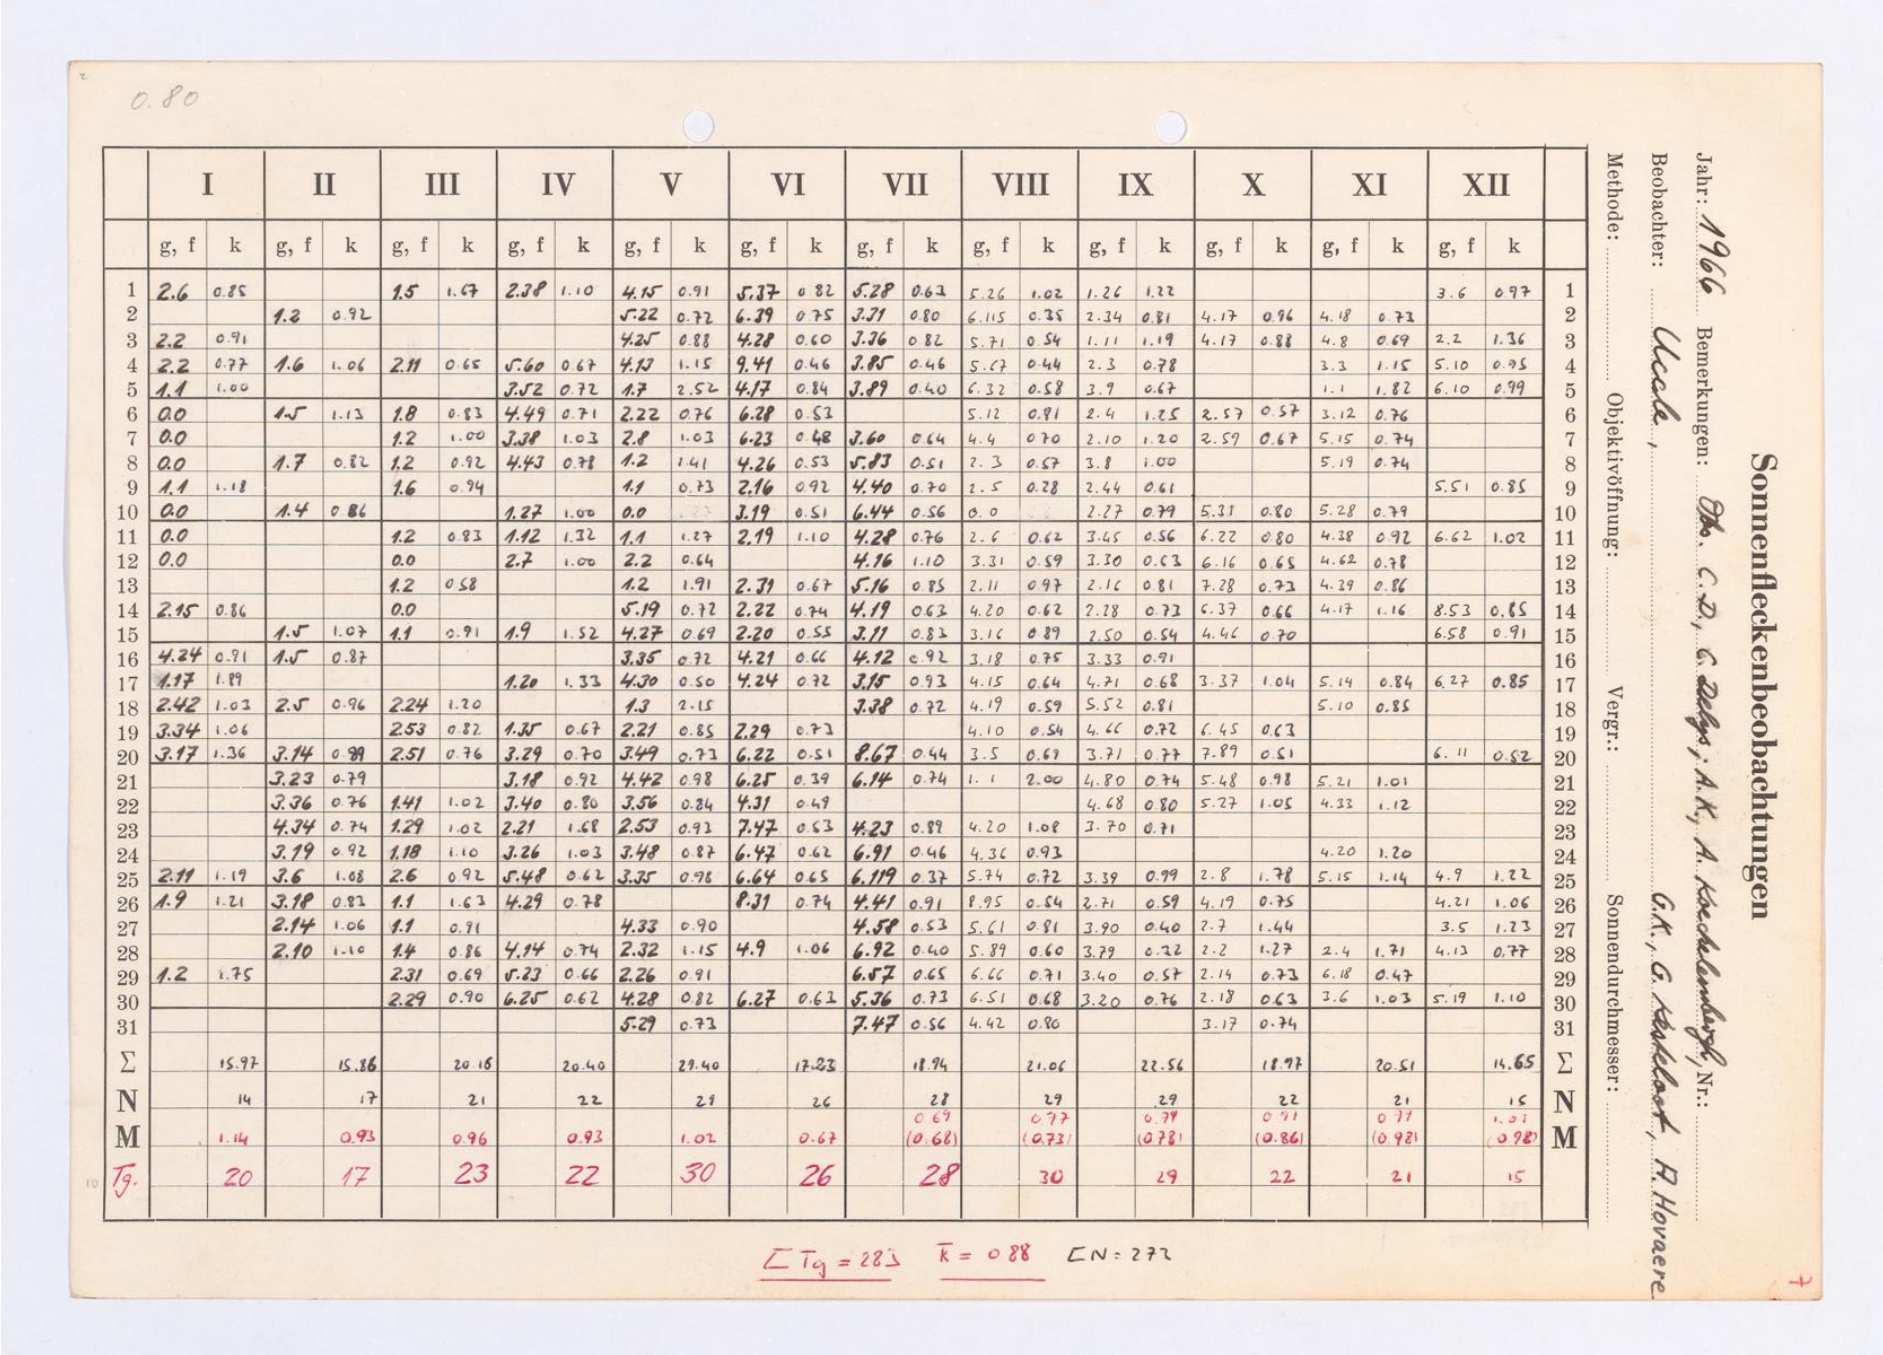 0.80
I II III IV V VI VII VIII IX X XI XII
g, f k g, f k g, f k g, f k g, f k g, f k g, f k g, f k g, f k g, f k g, f k g, f k
1 2.6 0.85 1.5 1.67 2.38 1.10 4.15 0.91 5.37 0.82 5.28 0.63 5.26 1.02 1.26 1.22 3.6 0.97 1
2 1.2 0.92 5.22 0.72 6.39 0.75 3.31 0.80 6.115 0.35 2.34 0.81 4.17 0.96 4.18 0.73 2
3 2.2 0.91 4.25 0.88 4.28 0.60 3.36 0.82 5.71 0.54 1.11 1.19 4.17 0.88 4.8 0.69 2.2 1.36 3
4 2.2 0.77 1.6 1.06 2.11 0.65 5.60 0.67 4.13 1.15 9.41 0.46 3.85 0.46 5.67 0.44 2.3 0.78 3.3 1.15 5.10 0.95 4
5 1.1 1.00 3.52 0.72 1.7 2.52 4.17 0.84 3.89 0.40 6.32 0.58 3.9 0.67 1.1 1.82 6.10 0.99 5
6 0.0 1.5 1.13 1.8 0.83 4.49 0.71 2.22 0.76 6.28 0.53 5.12 0.81 2.4 1.25 2.57 0.57 3.12 0.76 6
7 0.0 1.2 1.00 3.38 1.03 2.8 1.03 6.23 0.48 3.60 0.64 4.4 0.70 2.10 1.20 2.59 0.67 5.15 0.74 7
8 0.0 1.7 0.82 1.2 0.92 4.43 0.78 1.2 1.41 4.26 0.53 5.83 0.51 2.3 0.57 3.8 1.00 5.19 0.74 8
9 1.1 1.18 1.6 0.94 1.1 0.73 2.16 0.92 4.40 0.70 2.5 0.28 2.44 0.61 5.51 0.85 9
10 0.0 1.4 0.86 1.27 1.00 0.0 3.19 0.51 6.44 0.56 0.0 2.27 0.79 5.31 0.80 5.28 0.79 10
11 0.0 1.2 0.83 1.12 1.32 1.1 1.27 2.19 1.10 4.28 0.76 2.6 0.62 3.45 0.56 6.22 0.80 4.38 0.92 6.62 1.02 11
12 0.0 0.0 2.7 1.00 2.2 0.64 4.16 1.10 3.31 0.59 3.30 0.63 6.16 0.65 4.62 0.78 12
13 1.2 0.58 1.2 1.91 2.31 0.67 5.16 0.85 2.11 0.97 2.16 0.81 7.28 0.73 4.39 0.86 13
14 2.15 0.86 0.0 5.19 0.72 2.22 0.74 4.19 0.63 4.20 0.62 2.28 0.73 6.37 0.66 4.17 1.16 8.53 0.85 14
15 1.5 1.07 1.1 0.91 1.9 1.52 4.27 0.69 2.20 0.55 3.11 0.83 3.16 0.89 2.50 0.54 4.46 0.70 6.58 0.91 15
16 4.24 0.91 1.5 0.87 3.35 0.72 4.21 0.66 4.12 0.92 3.18 0.75 3.33 0.91 16
17 1.17 1.89 1.20 1.33 4.30 0.50 4.24 0.72 3.15 0.93 4.15 0.64 4.71 0.68 3.37 1.04 5.14 0.84 6.27 0.85 17
18 2.42 1.03 2.5 0.96 2.24 1.20 1.3 2.15 3.38 0.72 4.19 0.59 5.52 0.81 5.10 0.85 18
19 3.34 1.06 2.53 0.82 1.35 0.67 2.21 0.85 2.29 0.73 4.10 0.54 4.66 0.72 6.45 0.63 19
20 3.17 1.36 3.14 0.89 2.51 0.76 3.29 0.70 3.49 0.73 6.22 0.51 8.67 0.44 3.5 0.61 3.71 0.77 7.89 0.51 6.11 0.52 20
21 3.23 0.79 3.18 0.92 4.42 0.98 6.25 0.39 6.14 0.74 1.1 2.00 4.80 0.74 5.48 0.98 5.21 1.01 21
22 3.36 0.76 1.41 1.02 3.40 0.80 3.56 0.84 4.31 0.49 4.68 0.80 5.27 1.05 4.33 1.12 22
23 4.34 0.74 1.29 1.02 2.21 1.68 2.53 0.93 7.47 0.53 4.23 0.89 4.20 1.08 3.70 0.71 23
24 3.19 0.92 1.18 1.10 3.26 1.03 3.48 0.87 6.47 0.62 6.91 0.46 4.36 0.93 4.20 1.20 24
25 2.11 1.19 3.6 1.08 2.6 0.92 5.48 0.62 3.35 0.98 6.64 0.65 6.119 0.37 5.74 0.72 3.39 0.99 2.8 1.78 5.15 1.14 4.9 1.22 25
26 1.9 1.21 3.18 0.83 1.1 1.63 4.29 0.78 8.31 0.74 4.41 0.91 8.95 0.54 2.71 0.59 4.19 0.75 4.21 1.06 26
27 2.14 1.06 1.1 0.91 4.33 0.90 4.58 0.53 5.61 0.81 3.90 0.40 2.7 1.44 3.5 1.23 27
28 2.10 1.10 1.4 0.86 4.14 0.74 2.32 1.15 4.9 1.06 6.92 0.40 5.89 0.60 3.79 0.32 2.2 1.27 2.4 1.71 4.13 0.77 28
29 1.2 1.75 2.31 0.69 5.23 0.66 2.26 0.91 6.57 0.65 6.66 0.71 3.40 0.57 2.14 0.73 6.18 0.47 29
30 2.29 0.90 6.25 0.62 4.28 0.82 6.27 0.63 5.36 0.73 6.51 0.68 3.20 0.76 2.18 0.63 3.6 1.03 5.19 1.10 30
31 5.29 0.73 7.47 0.56 4.42 0.80 3.17 0.74 31
Σ 15.97 15.86 20.16 20.40 29.40 17.23 18.94 21.06 22.56 18.97 20.51 14.65 Σ
N 14 17 21 22 29 26 28 29 29 22 21 15 N
0.69 0.77 0.79 0.91 0.99 1.01
M 1.14 0.93 0.96 0.93 1.02 0.67 (0.68) (0.73) (0.78) (0.86) (0.98) (0.98) M
Tg. 20 17 23 22 30 26 28 30 29 22 21 15
Σ Tg = 283 k̅ = 0.88 ΣN = 272
Sonnenfleckenbeobachtungen
Jahr: 1966 Bemerkungen: Obs. C.D., C. Delys; A.K., A. Koeckelenbergh, Nr.:
Beobachter: Uccle, G.K., G. Kesteloot, A. Hovaere
Methode: Objektivöffnung: Vergr.: Sonnendurchmesser:
10
7